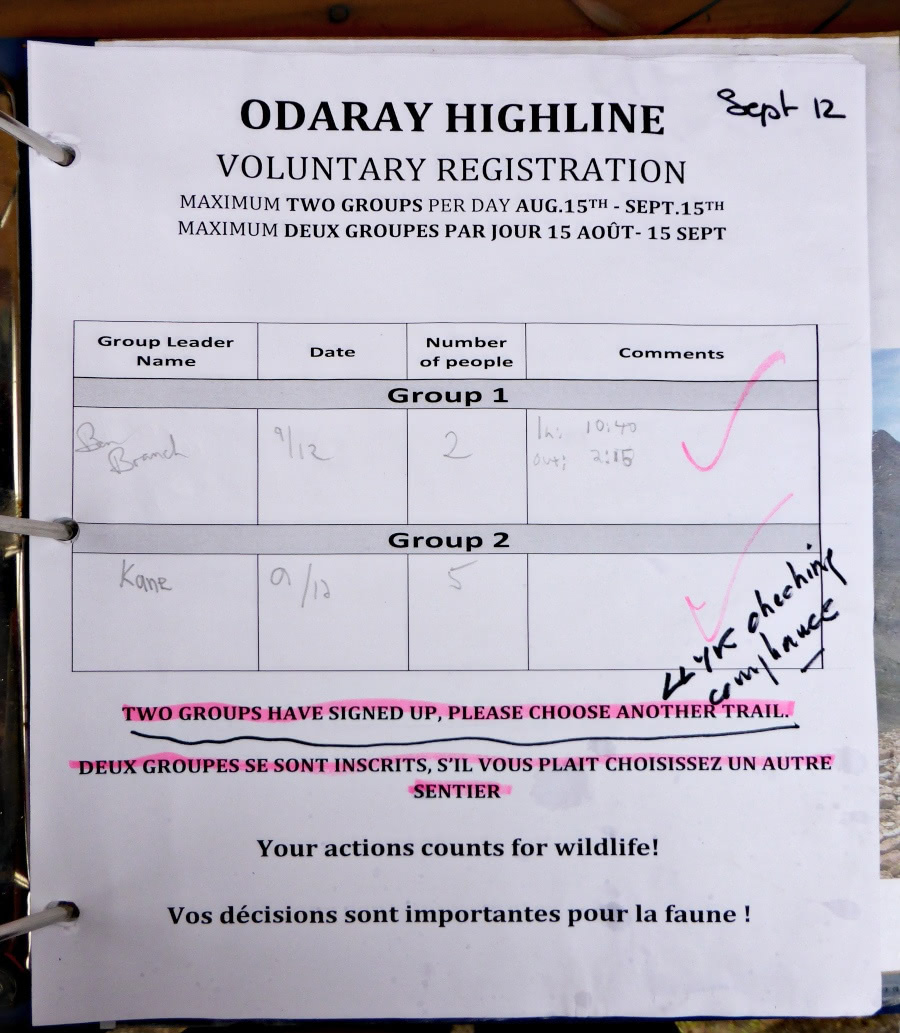 ODARAY HIGHLINE
Sept 12
VOLUNTARY REGISTRATION
MAXIMUM TWO GROUPS PER DAY AUG.15TH - SEPT.15TH
MAXIMUM DEUX GROUPES PAR JOUR 15 AOÛT- 15 SEPT
Group Leader Name
Date
Number of people
Comments
Group 1
Ben Branch
9/12
2
In: 10:40
out: 2:15
Group 2
Kane
9/12
5
checking
compliance
TWO GROUPS HAVE SIGNED UP, PLEASE CHOOSE ANOTHER TRAIL.
DEUX GROUPES SE SONT INSCRITS, S'IL VOUS PLAIT CHOISISSEZ UN AUTRE
SENTIER
Your actions counts for wildlife!
Vos décisions sont importantes pour la faune !